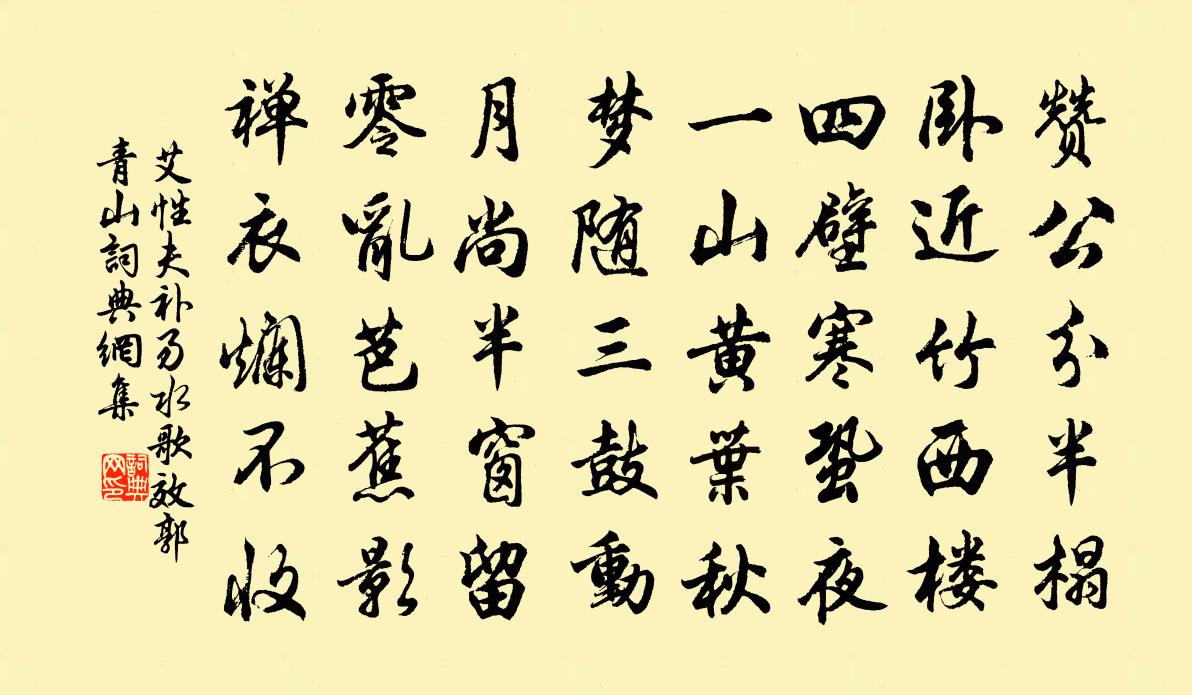 赞公分半榻
卧近竹西楼
四壁寒蛩夜
一山黄葉秋
梦随三鼓動
月尚半窗留
零亂芭蕉影
禅衣爛不收
艾性夫补易水歌效郭
青山詞典網集
詞典网印